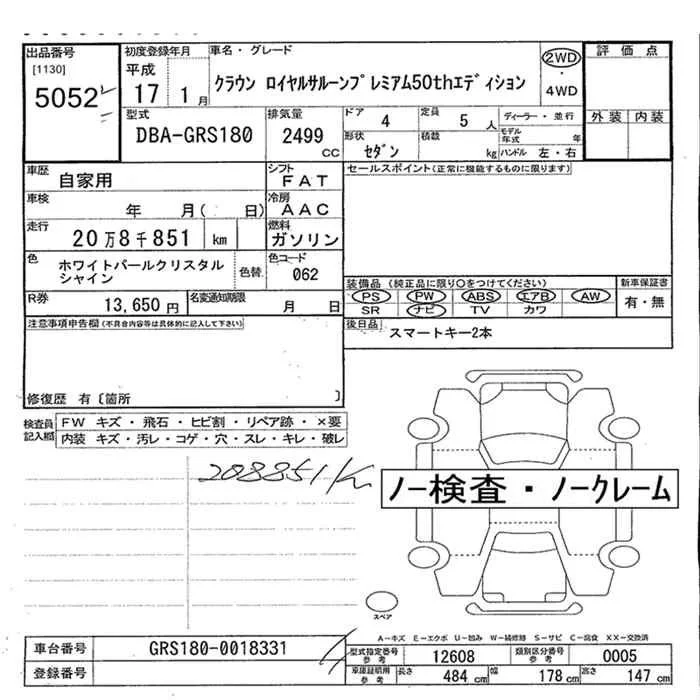 出品番号
[1130]
5052
初度登録年月
平成
17 1月
車名・グレード
クラウン ロイヤルサルーンプレミアム50thエディション
2WD
・
4WD
評価点
外装 内装
型式
DBA-GRS180
排気量
2499
CC
ドア
4
定員
5 人
形状
セダン
積載
kg
ディーラー・並行
モデル年式 年
ハンドル 左・右
車歴
自家用
シフト
FAT
車検
年 月( 日)
冷房
AAC
走行
20万8千851 km
燃料
ガソリン
色
ホワイトパールクリスタル
シャイン
色替
色コード
062
R券
13,650 円
名変通知期限
月 日
セールスポイント(正常に機能するものに限ります)
装備品(純正品に限り○をつけてください)
PS PW ABS エアB AW
SR ナビ TV カワ
新車保証書
有・無
後日品
スマートキー2本
注意事項申告欄(不具合内容等は具体的に記入して下さい)
修復歴 有〔箇所 〕
検査員記入欄
FW キズ・飛石・ヒビ割・リペア跡・×要
内装 キズ・汚レ・コゲ・穴・スレ・キレ・破レ
208851Km
ノー検査・ノークレーム
スペア
A-キズ E-エクボ U-凹み W-補修跡 S-サビ C-腐食 XX-交換済
車台番号
GRS180-0018331
登録番号
型式指定番号
参考
12608
類別区分番号
参考
0005
車庫証明用
参考
長さ 484 cm
幅 178 cm
高さ 147 cm